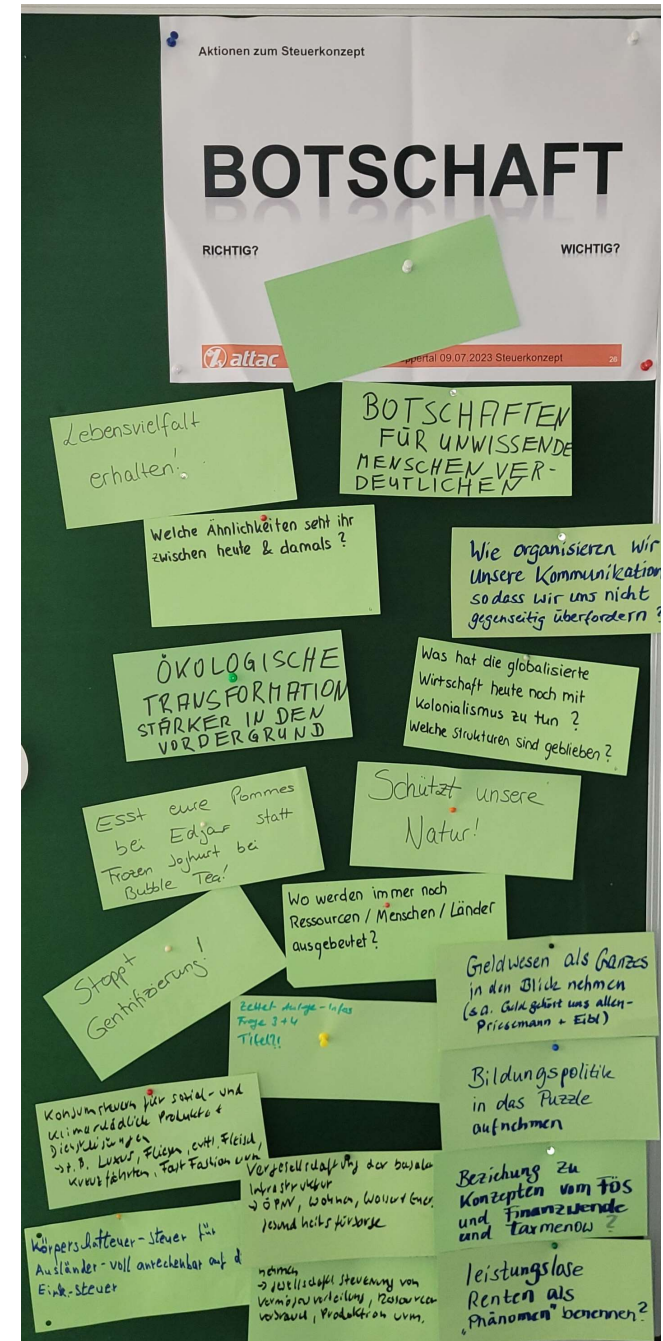 Aktionen zum Steuerkonzept
BOTSCHAFT
RICHTIG?
WICHTIG?
attac
ppertal 09.07.2023 Steuerkonzept
26
Lebensvielfalt
erhalten!
BOTSCHAFTEN
FÜR UNWISSENDE
MENSCHEN VER-
DEUTLICHEN
Welche Ähnlichkeiten seht ihr
zwischen heute & damals?
Wie organisieren wir
unsere Kommunikation
sodass wir uns nicht
gegenseitig überfordern?
ÖKOLOGISCHE
TRANSFORMATION
STÄRKER IN DEN
VORDERGRUND
Was hat die globalisierte
Wirtschaft heute noch mit
Kolonialismus zu tun?
Welche Strukturen sind geblieben?
Esst eure Pommes
bei Edjar statt
Frozen Joghurt bei
Bubble Tea!
Schützt unsere
Natur!
Wo werden immer noch
Ressourcen / Menschen / Länder
ausgebeutet?
Stoppt
Gentrifizierung!
Geldwesen als Ganzes
in den Blick nehmen
(s.a. Geld gehört uns allen-
Priesemann + Eibl)
Zettel Anlage-Infos
Frage 3+4
Titel?!
Bildungspolitik
in das Puzzle
aufnehmen
Konsumsteuern für sozial- und
klimaschädliche Produkte +
Dienstleistungen
→ z.B. Luxus, Fliegen, evtl. Fleisch,
Kreuzfahrten, Fast Fashion uvm
Vergesellschaftung der basalen
Infrastruktur
→ ÖPNV, Wohnen, Wasser, Ener,
Gesundheitsfürsorge
Beziehung zu
Konzepten vom FÖS
und Finanzwende
und taxmenow?
Körperschafteuer-steuer für
Ausländer-voll anrechenbar auf d
Eink-steuer
nehmen
→ gesellschaftl Steuerung von
Vermögensverteilung, Ressourcen
verbrauch, Produktion uvm.
leistungslose
Renten als
„Phänomen" benennen?